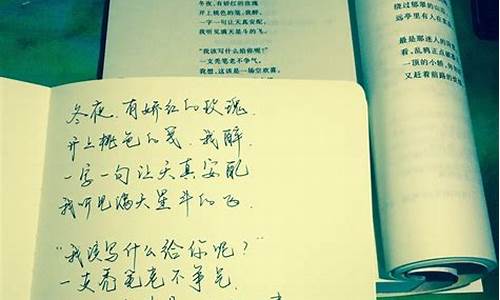 冬夜，有娇红的玫瑰
开上桃色的笺，我醉，
一字一句让天真安配，
我听见满天星斗的飞。
“我该写什么给你呢？”
一支秃笔老不争气。
我想，这该是一场空欢喜，
绕过郁翠的山
远亭里有人在
最是那迷人的
看，乱鸦正点破
一顶的小轿，
又赶着前路的
冬夜，有娇红的玫瑰，
开上桃色的笺，我醉，
一字一句让天真安配
我听见满天星斗的飞。
“我该写什么给你呢？”
一支秃笔老不争气。